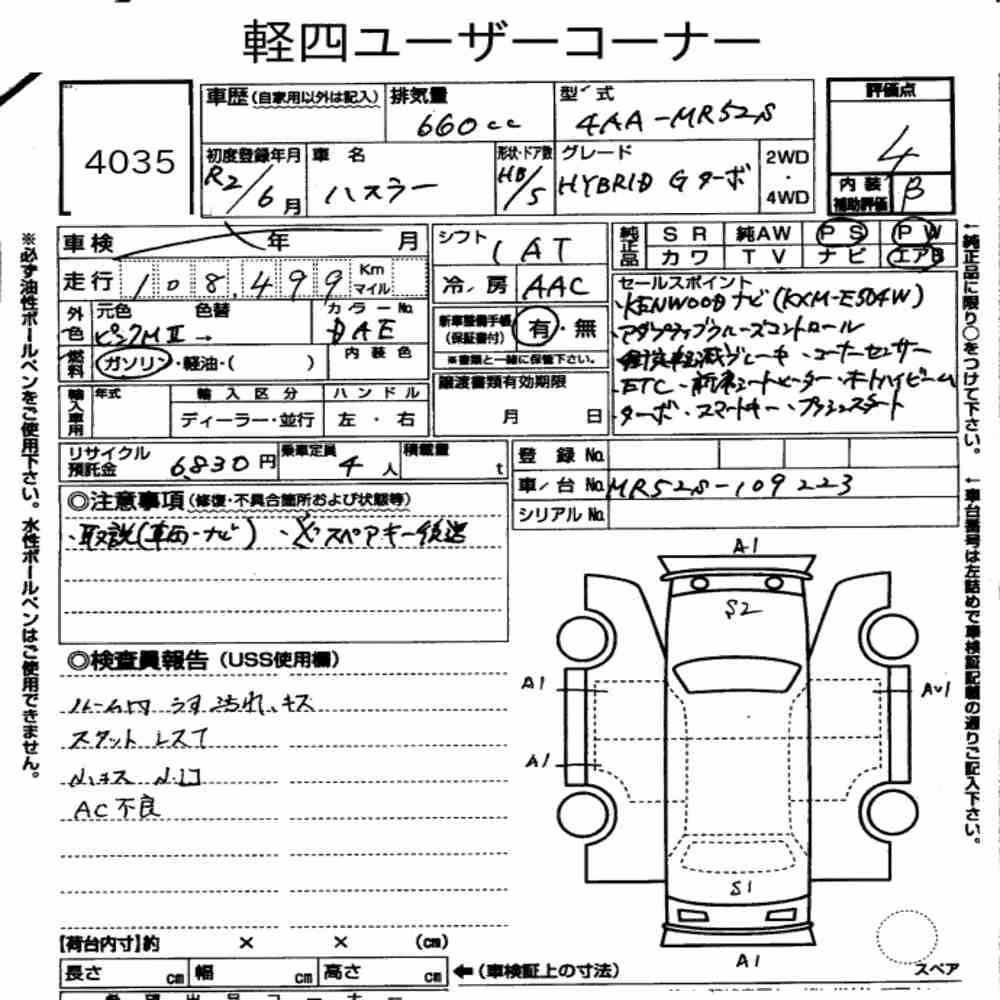 軽四ユーザーコーナー
4035
車歴(自家用以外は記入)
排気量 660cc
型式 4AA-MR52S
評価点 4
初度登録年月 R2/6月
車名 ハスラー
形状・ドア数 HB/5
グレード HYBRID G ターボ
2WD・4WD
内装補助評価 B
車検 年 月
シフト IAT
純正品 SR 純AW PS PW
カワ TV ナビ エアB
走行 108,499 Km マイル
冷房 AAC
セールスポイント
・KENWOODナビ(KXM-E504W)
・アダプティブクルーズコントロール
・衝突軽減ブレーキ・コーナーセンサー
・ETC・前席シートヒーター・オートハイビーム
・ターボ・スマートキー・プッシュスタート
外色 元色 ピンクMⅡ→ 色替
カラーNo. DAE
新車整備手帳(保証書付) 有・無
※書類と一緒に保管下さい。
燃料 ガソリン・軽油・( )
内装色
譲渡書類有効期限
月 日
輸入車用 年式
輸入区分 ディーラー・並行
ハンドル 左・右
リサイクル預託金 6830円
乗車定員 4人
積載量 t
登録No.
車台No. MR52S-109223
シリアルNo.
◎注意事項(修復・不具合箇所および状態等)
・取説(車両・ナビ)・スペアキー後送
◎検査員報告(USS使用欄)
ルーム内うす汚れ、キズ
スタットレス7
小キズ 小凹
AC不良
A1
S2
A1
AU1
A1
S1
A1
スペア
【荷台内寸】約 × × (cm)
長さ cm 幅 cm 高さ cm
←(車検証上の寸法)
※必ず油性ボールペンをご使用下さい。水性ボールペンはご使用できません。
←純正品に限り○をつけて下さい。
←車台番号は左詰めで車検証記載の通りご記入下さい。